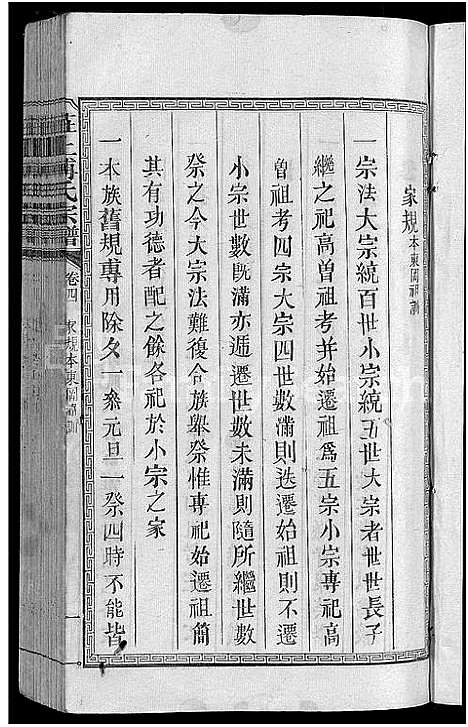 家規本東岡祖訓
一宗法大宗統百世小宗統五世大宗者世世長子
繼之祀高曽祖考并始遷祖爲五宗小宗專祀高
曽祖考四宗大宗四世數滿則迭遷始祖則不遷
小宗世數既滿亦遞遷世數未滿則隨所繼世數
祭之今大宗法難復合族舉祭惟專祀始遷祖簡
其有功德者配之餘各祀於小宗之家
一本族舊規專用除夕一祭元旦一祭四時不能皆
氏宗譜
卷四
家規本東岡
一